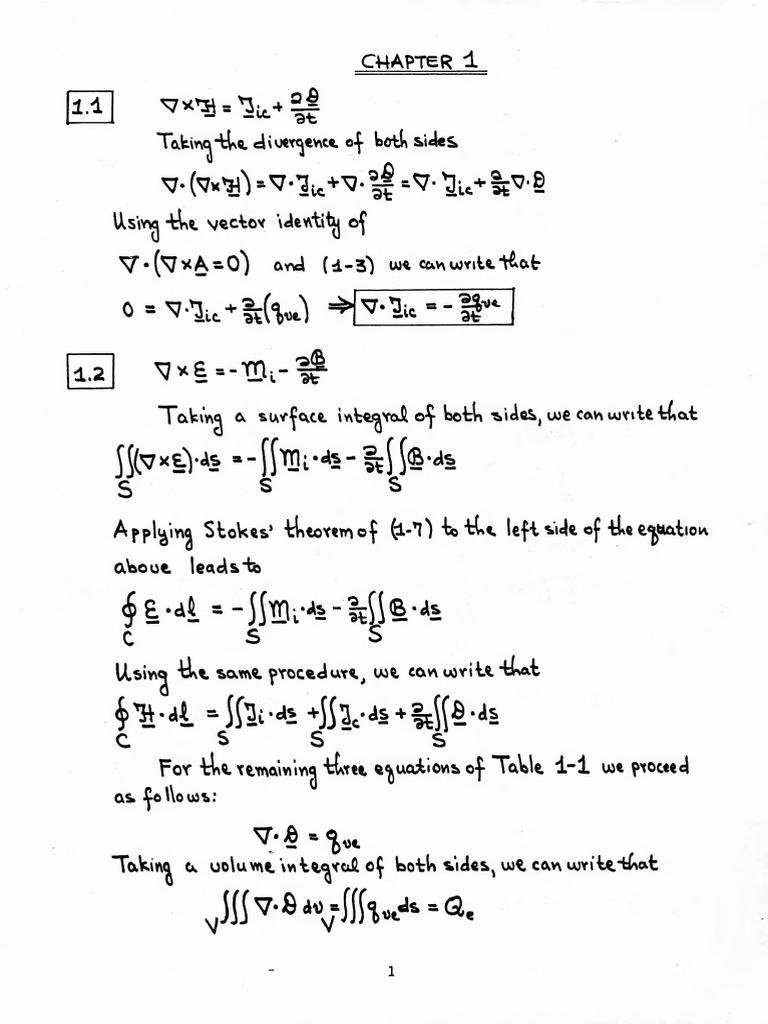 CHAPTER 1
1.1 ∇×H = J_ic + ∂D/∂t
Taking the divergence of both sides
∇·(∇×H) = ∇·J_ic + ∇·∂D/∂t = ∇·J_ic + ∂/∂t ∇·D
Using the vector identity of
∇·(∇×A=0) and (1-3) we can write that
0 = ∇·J_ic + ∂/∂t(q_ve) ⇒ ∇·J_ic = -∂q_ve/∂t
1.2 ∇×E = -M_i - ∂B/∂t
Taking a surface integral of both sides, we can write that
∬_S (∇×E)·ds = -∬_S M_i·ds - ∂/∂t ∬_S B·ds
Applying Stokes' theorem of (1-7) to the left side of the equation
above leads to
∮_C E·dl = -∬_S M_i·ds - ∂/∂t ∬_S B·ds
Using the same procedure, we can write that
∮_C H·dl = ∬_S J_i·ds + ∬_S J_c·ds + ∂/∂t ∬_S D·ds
For the remaining three equations of Table 1-1 we proceed
as follows:
∇·D = q_ve
Taking a volume integral of both sides, we can write that
∭_V ∇·D dv = ∭_V q_ve ds = Q_e
- 1